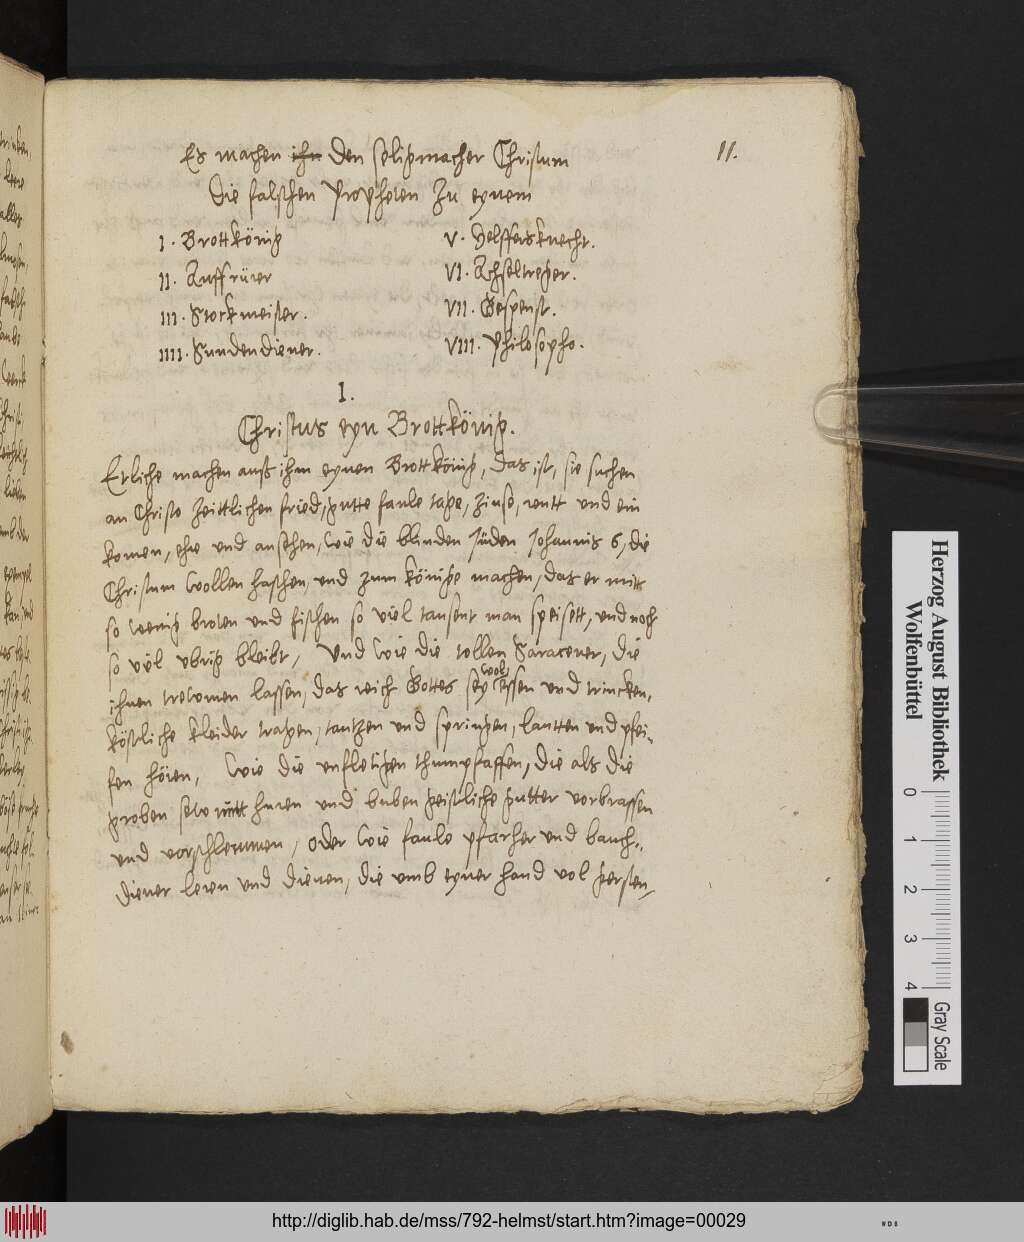 11.
Es machen ihn den seligmacher Christum
die falschen Propheten zu eynem
I. Brottkönig
II. Auffrürer
III. Stockmeister.
IIII. Sundendiener.
V. Helffersknecht.
VI. Achseltreger.
VII. Gespenst.
VIII. Philosopho.
I.
Christus eyn Brottkönig.
Etliche machen auß ihm eynen Brottkönig, das ist, sie suchen
an Christo zeittlichen fried, gutte faule tage, zinse, rentt und ein
komen, ehre und ansehen, wie die blinden Jüden Johannis 6, die
Christum wollen haschen, und zum könige machen, das er mitt
so wenig broten und fischen so viel tausent man speisett, und noch
so viel vbrig bleibt, Und wie die tollen Saracener, die
ihnen trewmen lassen, das reich Gottes sey wol essen und trincken,
köstliche kleider tragen, tantzen und springen, lautten und pfei-
fen hören, wie die unfletigen thumpfaffen, die als die
groben sew mitt huren und buben geistliche gutter vorbrassen
und vorschlemmen, oder wie faule pfarher und bauch-
diener leren und dienen, die umb eyner hand vol gersten,
Herzog August Bibliothek
Wolfenbüttel
0 1 2 3 4
Gray Scale
http://diglib.hab.de/mss/792-helmst/start.htm?image=00029